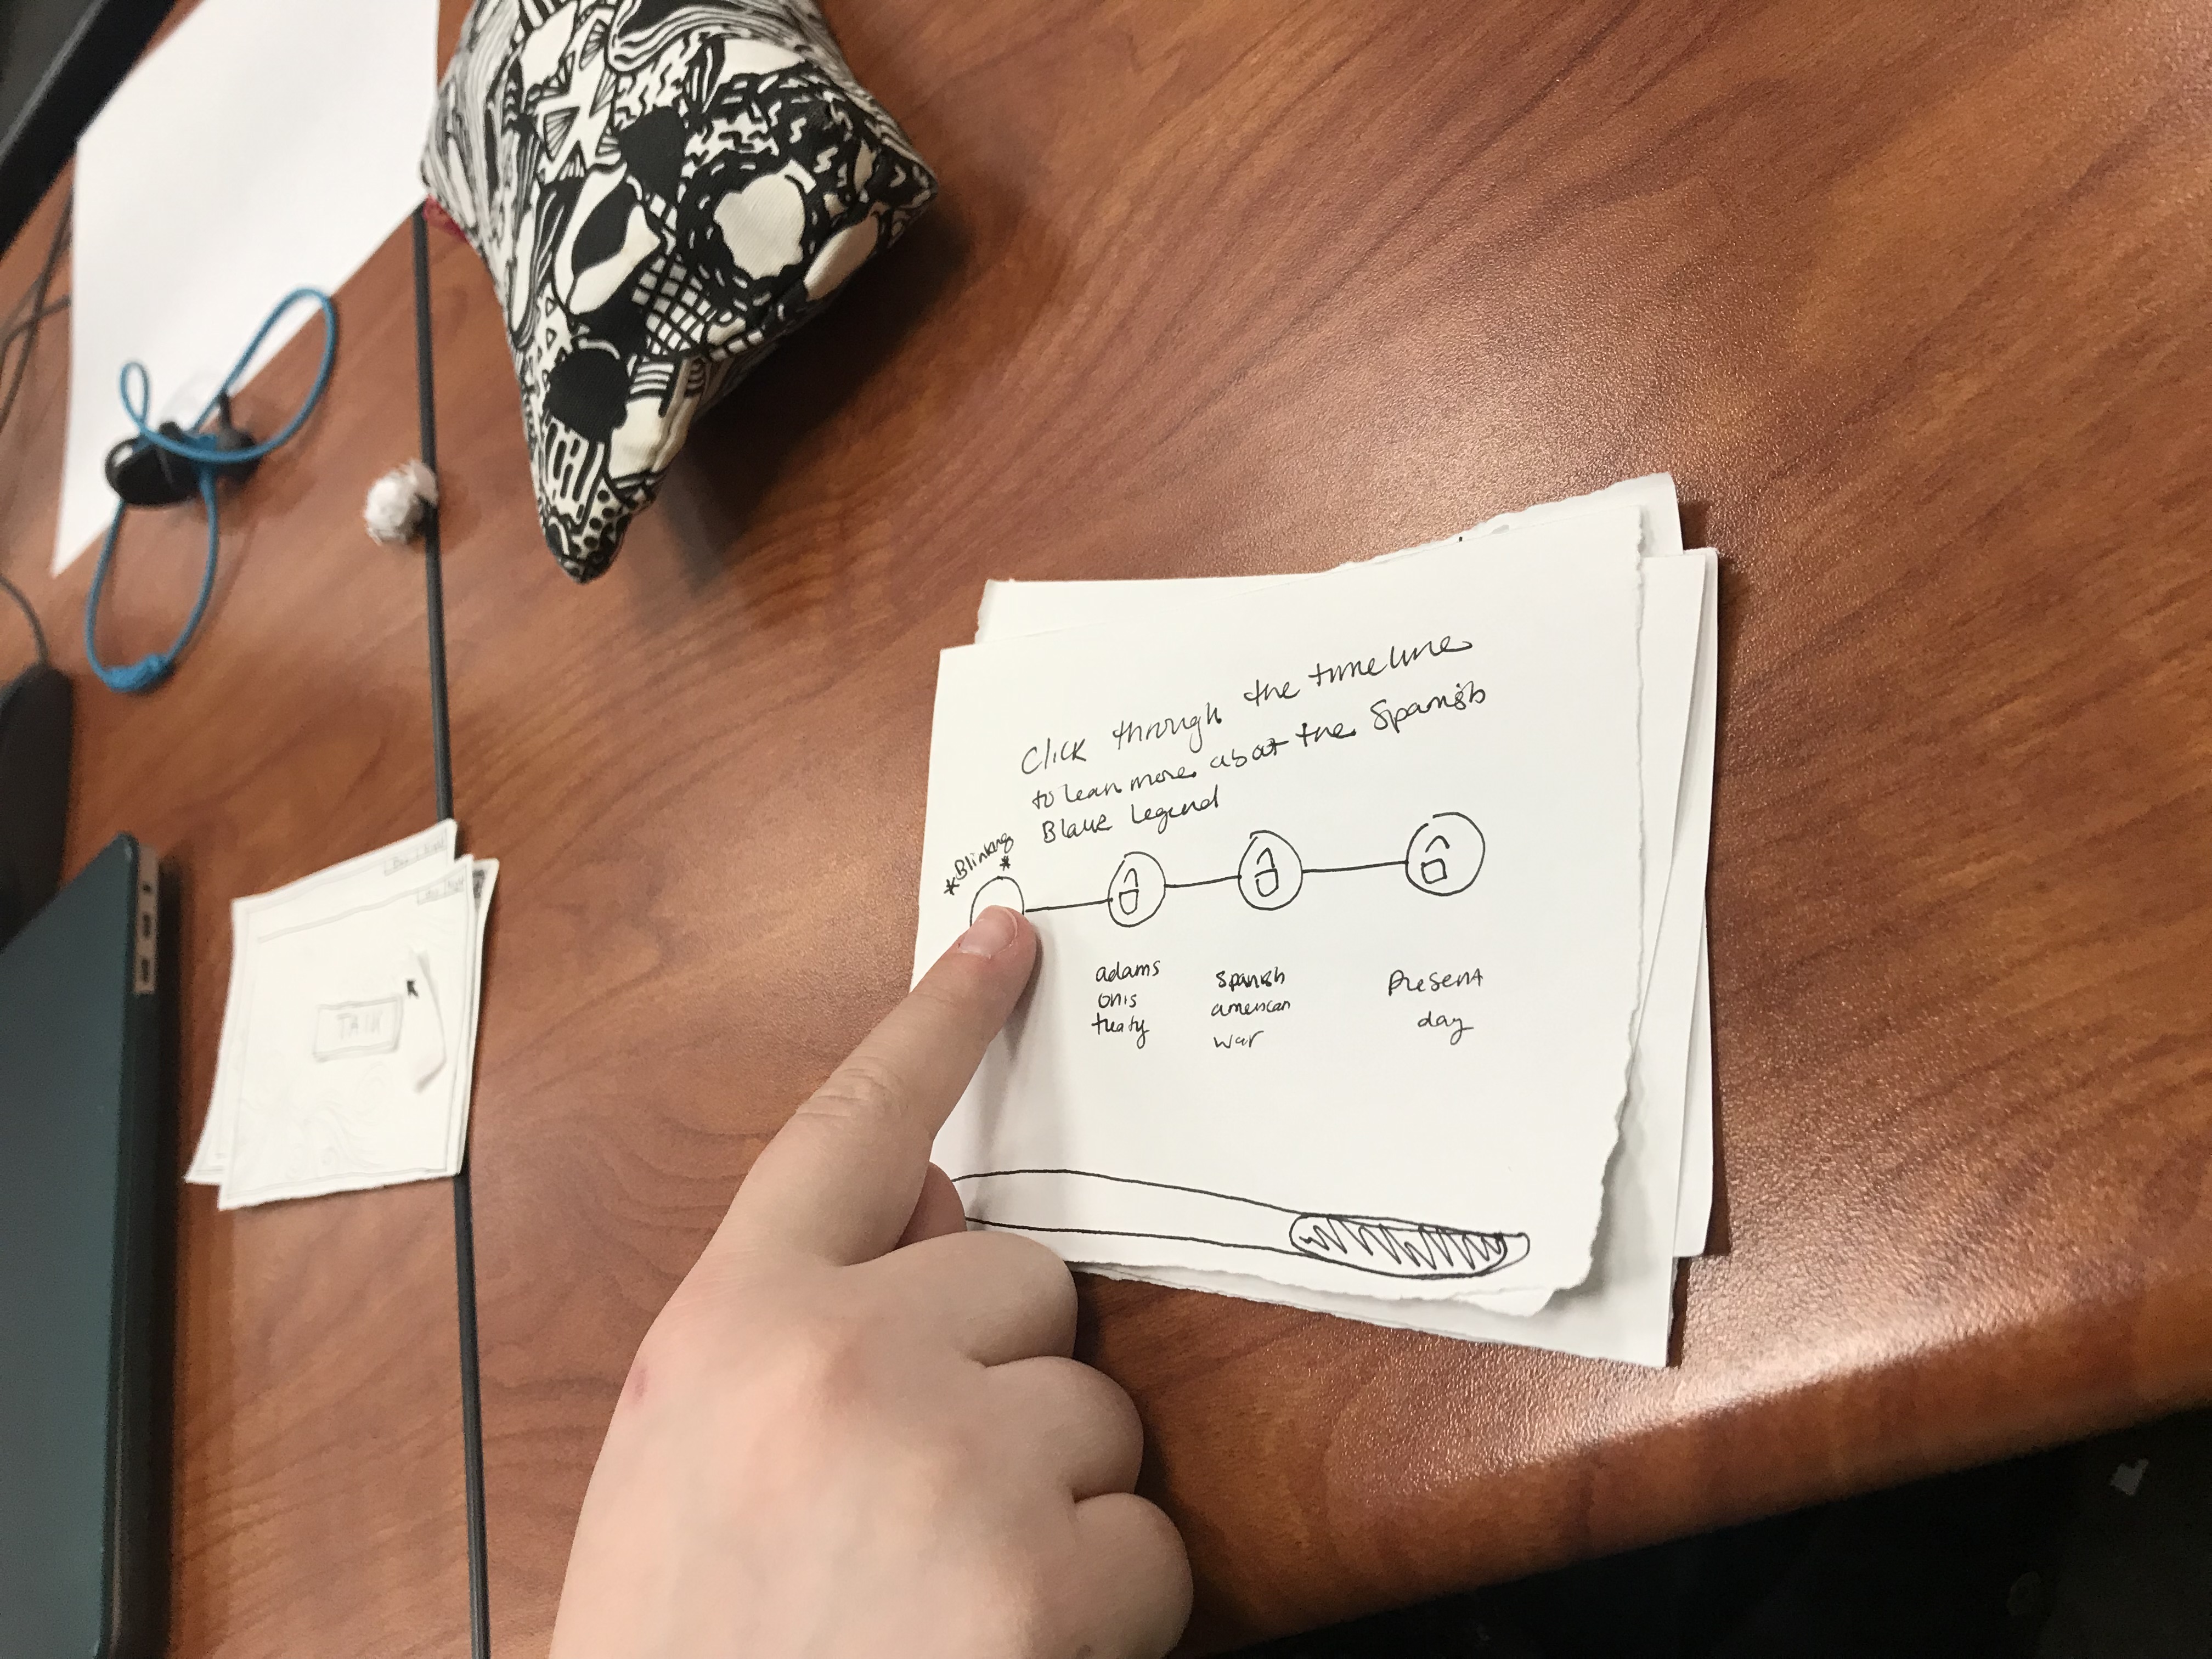 Click through the timeline
to learn more about the Spanish
Black Legend
*Blinking*
adams
onis
treaty
spanish
american
war
Present
day